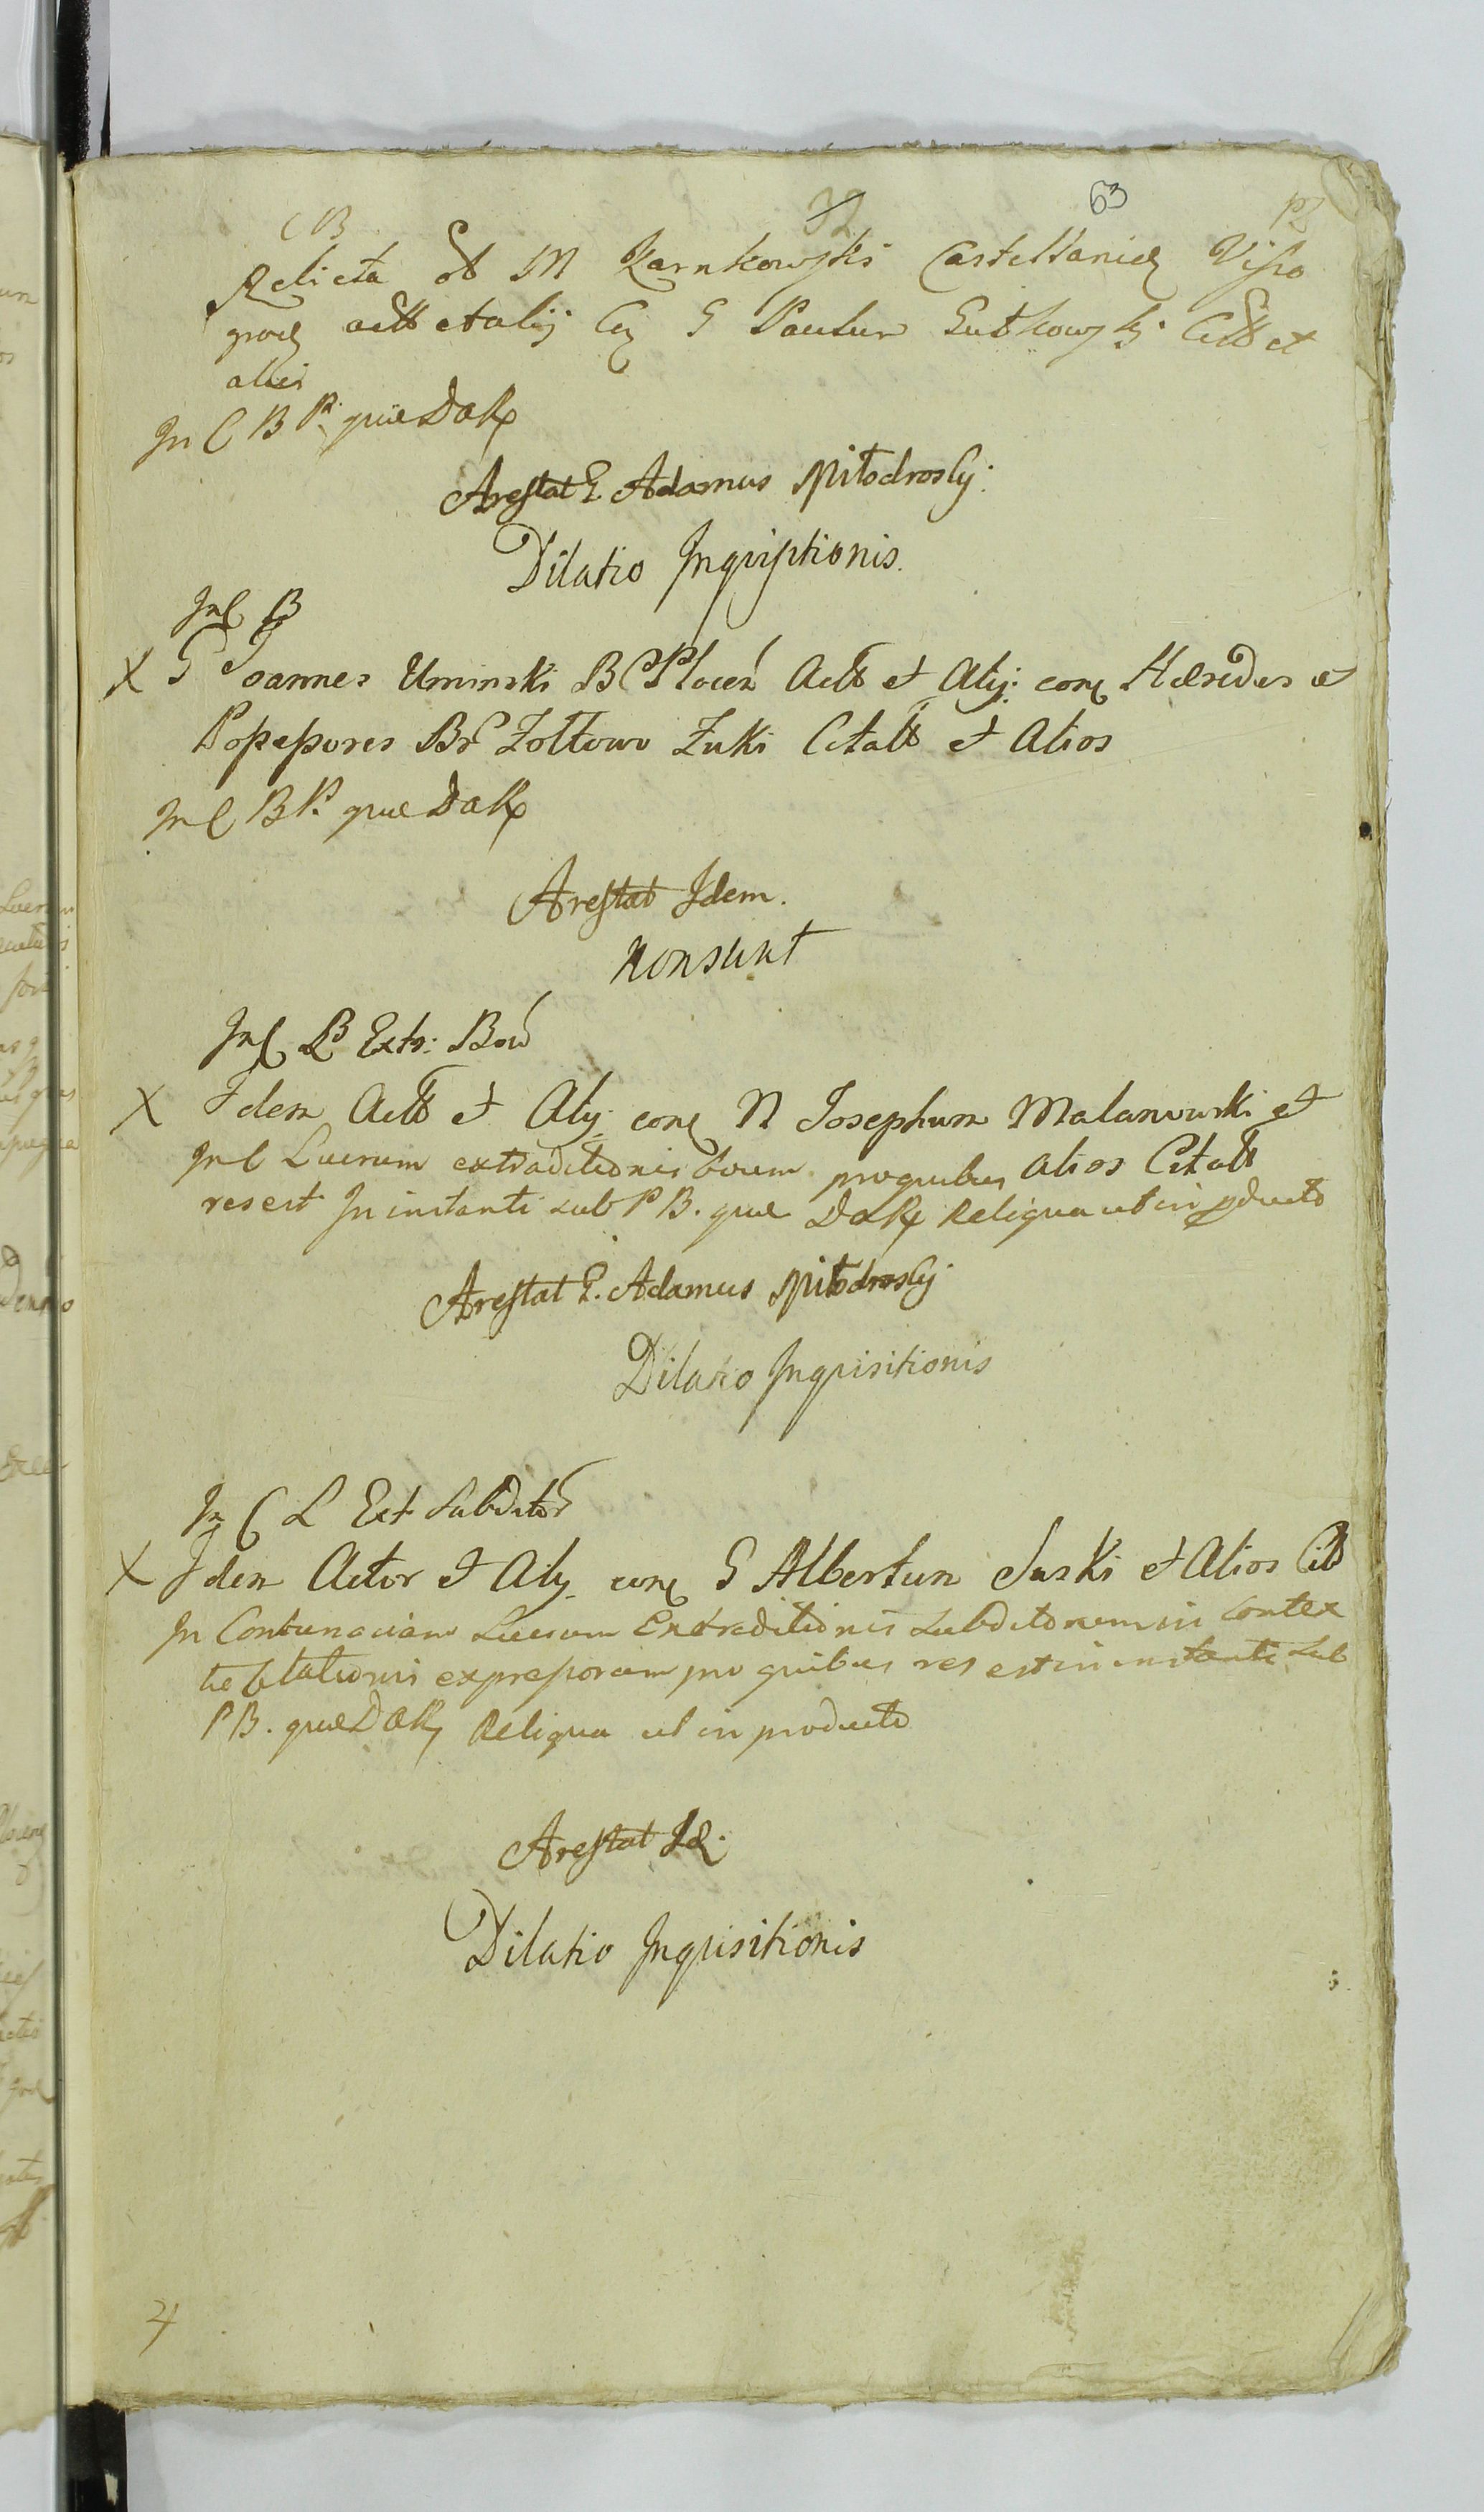 CB 32 63 PZ
Relicta ol M Karnkowski Castellanid Viso
grod actt et alij Cq G Paulum Gutkowski Citt et
alios
In C B P. quæ DaRx
Arestat G. Adamus Młodroscij:
Dilatio Inqvisitionis.
InC B
X G Joannes Uminski BCPlocen Actt et Alij. conq Hæredes et
Possessores Br Zołtowo Zuki Citatt et Alios
InC BP. quæ DaRx
Arestat Idem.
Non sunt
InC L Extr: Boū
X Idem Actt et Alij conq N Josephum Malanowski et
InC Lucrum extraditionis boum proquibus Alios Citatt
res est In instanti sub PB. quæ DaRx Reliqua ut in producto
Arestat G. Adamus Młodroscij
Dilatio Inqvisitionis
In C L Ext Subditor
X Idem Actor et Alij conq G Albertum Suski et Alios Citt
In Contumaciam Lucrum Extraditionis Subditorum in Contex
tu Citationis expressorum pro quibus res est in instanti sub
PB. quæ DaRx Reliqua ut in producto
Arestat Id.
Dilatio Inqvisitionis
4